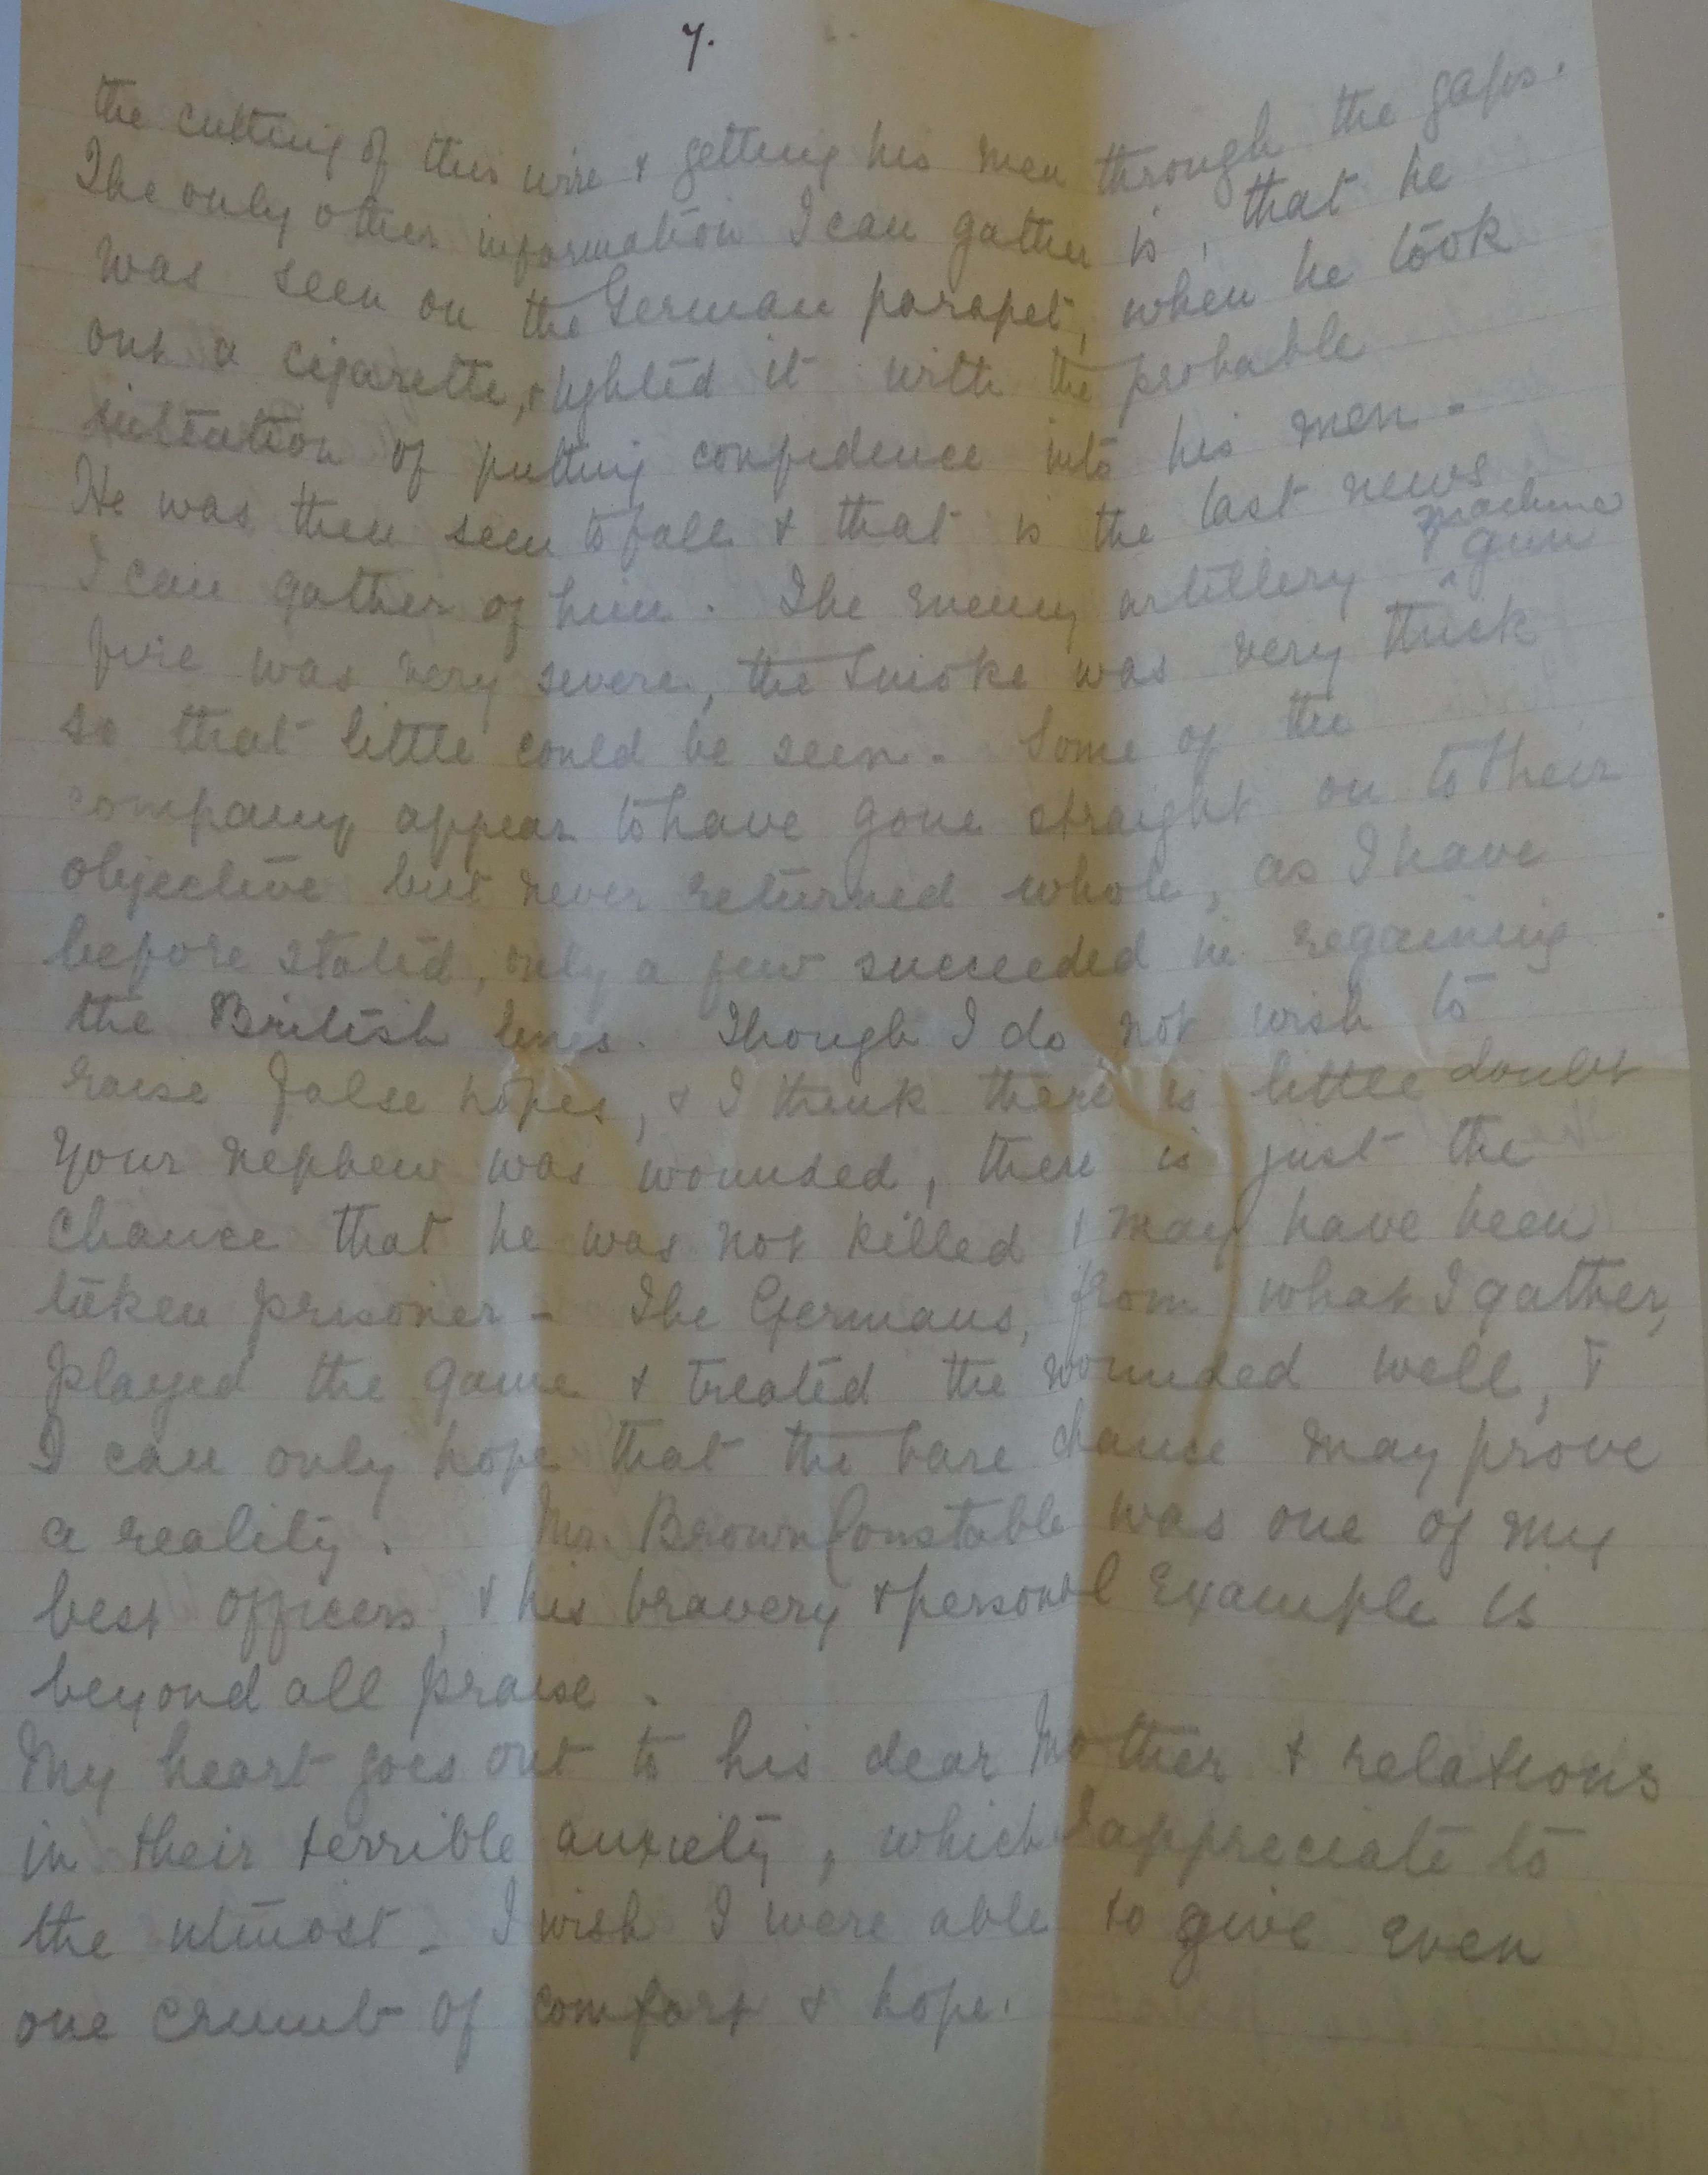 7.
the cutting of this wire & getting his men through the gaps.
The only other information I can gather is, that he
was seen on the German parapet, when he took
out a cigarette, & lighted it with the probable
intention of putting confidence into his men -
He was then seen to fall & that is the last news
I can gather of him. The enemy artillery & machine gun
fire was very severe, the smoke was very thick
so that little could be seen - Some of the
company appear to have gone straight on to their
objective but never returned whole, as I have
before stated, only a few succeeded in regaining
the British lines. Though I do not wish to
raise false hopes, & I think there is little doubt
your nephew was wounded, there is just the
chance that he was not killed & may have been
taken prisoner - The Germans, from what I gather,
played the game & treated the wounded well, &
I can only hope that the bare chance may prove
a reality. Mr. Brown Constable was one of my
best officers, & his bravery & personal example is
beyond all praise.
My heart goes out to his dear Mother & relations
in their terrible anxiety, which I appreciate to
the utmost - I wish I were able to give even
one crumb of comfort & hope.